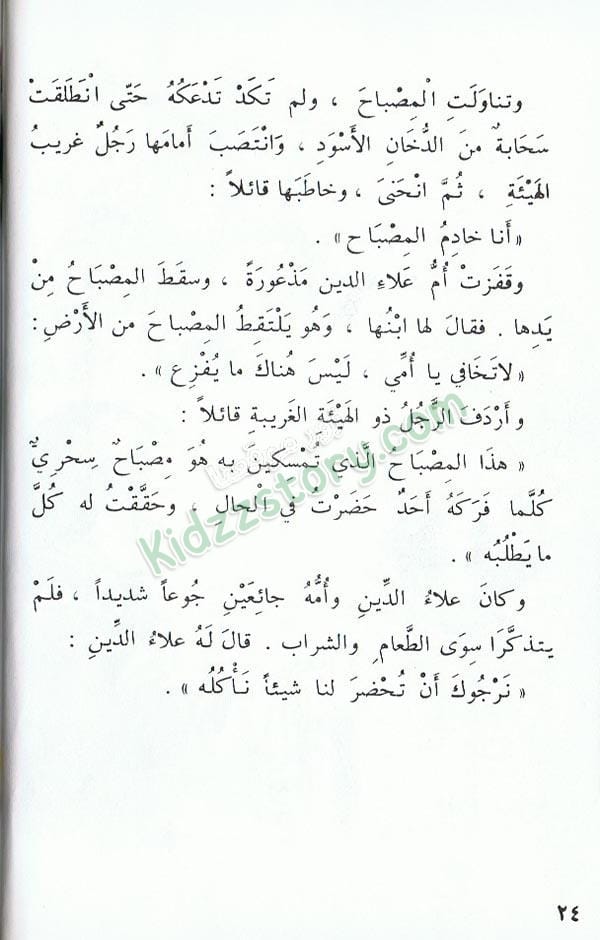 وتناوَلَتِ الْمِصْباحَ ، ولم تَكَدْ تَدْعَكُهُ حَتَّى انْطَلَقَتْ
سَحَابةٌ منَ الدُّخَانِ الأَسْوَدِ ، وَانْتَصَبَ أمامَها رَجُلٌ غريبُ
الهَيْئَةِ ، ثُمَّ انْحَنىَ ، وخاطَبَها قائلاً :
« أَنا خادِمُ المِصْبَاح » .
وقَفَزتْ أُمُّ عَلاءِ الدين مَذْعُورَةً ، وسقَطَ المِصْبَاحُ مِنْ
يَدِها . فقالَ لها ابْنُها ، وَهُو يَلْتَقِطُ المِصْباحَ من الأَرْضِ :
« لاتَخَافي يا أُمِّي ، لَيْسَ هُناكَ ما يُفْزِع » .
و أَرْدَفَ الرَّجُلُ ذو الهَيْئَةِ الغَريبةِ قائلاً :
« هذا المِصْباحُ الَّذي تُمْسكينَ به هُوَ مِصْباحٌ سِحْرِيٌّ
كُلَّما فَرَكَهُ أَحَدٌ حَضَرْتُ في الْحالِ ، وحَقَّقْتُ له كُلَّ
ما يَطْلُبُه » .
و كانَ علاءُ الدِّينِ وأُمُّهُ جائِعَيْنِ جُوعاً شديداً ، فلَمْ
يتذكَّرَا سِوَى الطَّعامِ والشراب . قالَ لَهُ علاءُ الدِّينِ :
« نَرْجُوكَ أَنْ تُحْضرَ لنا شيئاً نَأْكُلُه » .
Kidzzstory.com
٢٤